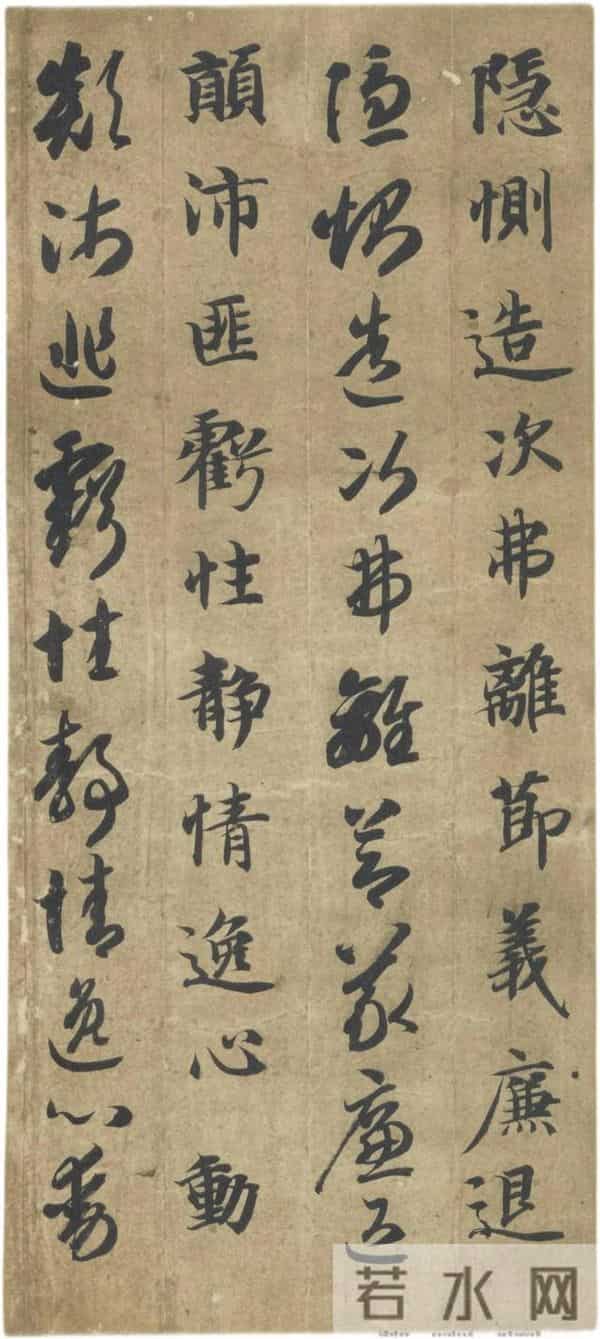 隱惻造次弗離節義廉退
隱惻造次弗離節義廉退
顛沛匪虧性静情逸心動
顛沛匪虧性静情逸心動
若水网